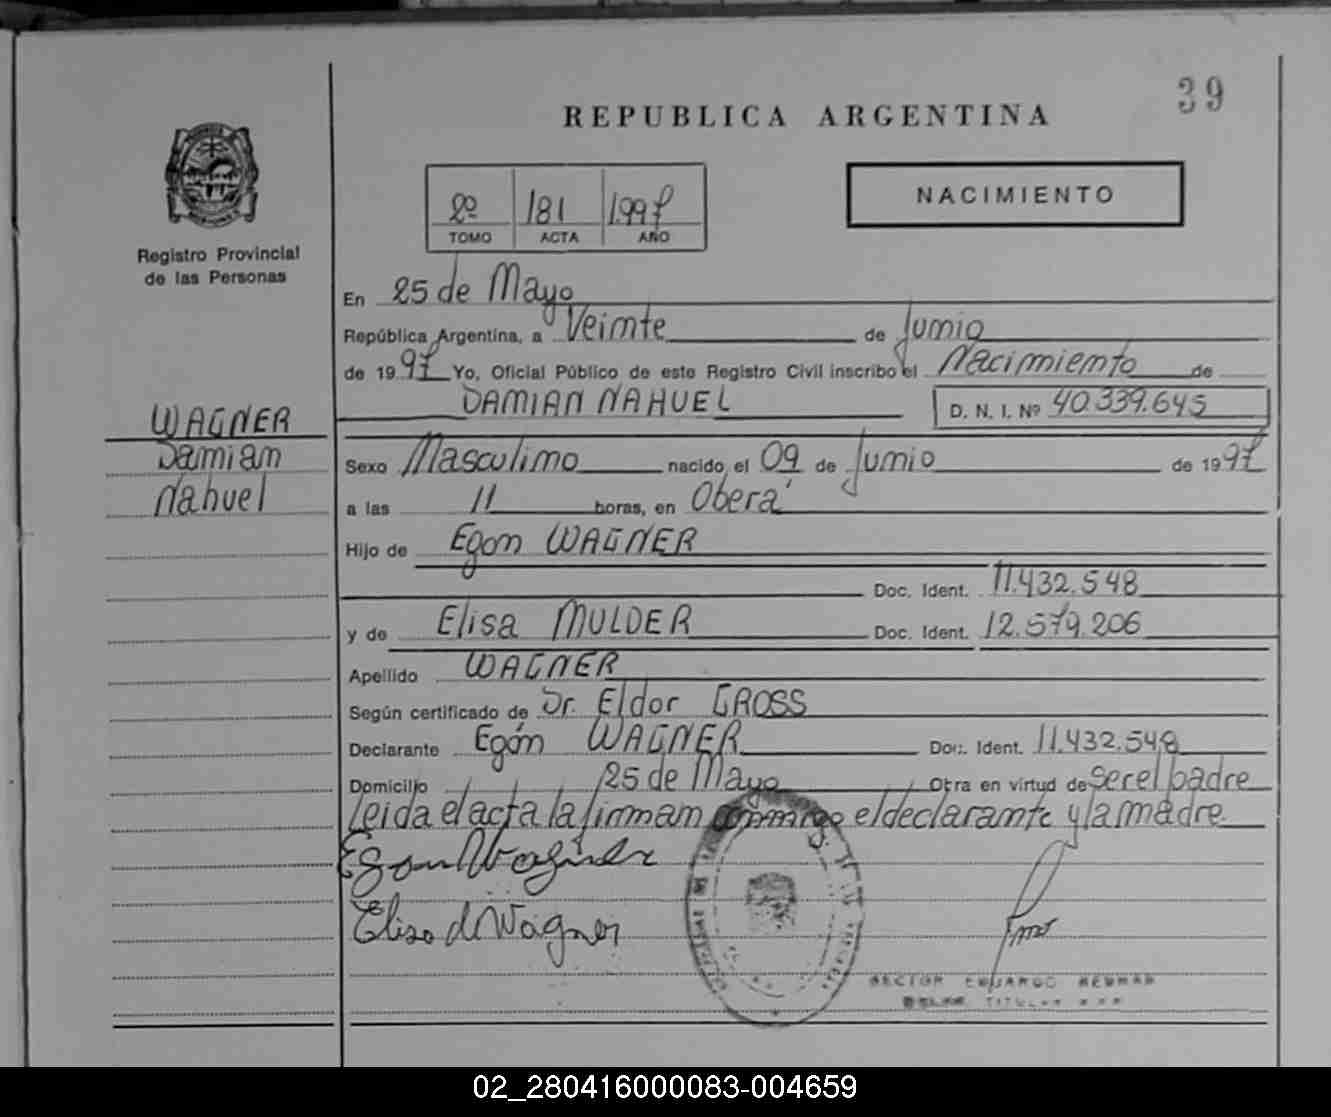 39
REPUBLICA ARGENTINA
NACIMIENTO
2º 181 1.997
TOMO ACTA AÑO
Registro Provincial
de las Personas
En 25 de Mayo
República Argentina, a Veinte de Junio
de 19 97 Yo, Oficial Público de este Registro Civil inscribo el Nacimiento de
DAMIAN NAHUEL D. N. I. Nº 40.339.645
WAGNER
Damian
Nahuel
Sexo Masculino nacido el 09 de Junio de 19 97
a las 11 horas, en Oberá
Hijo de Egon WAGNER
Doc. Ident. 11.432.548
y de Elisa MULDER Doc. Ident. 12.579.206
Apellido WAGNER
Según certificado de Dr. Eldor GROSS
Declarante Egón WAGNER Doc. Ident. 11.432.548
Domicilio 25 de Mayo Otra en virtud de ser el padre
leida el acta la firman conmigo el declarante y la madre.
Egon Wagner
Elisa d Wagner
HECTOR EDUARDO
TITULAR
02_280416000083-004659